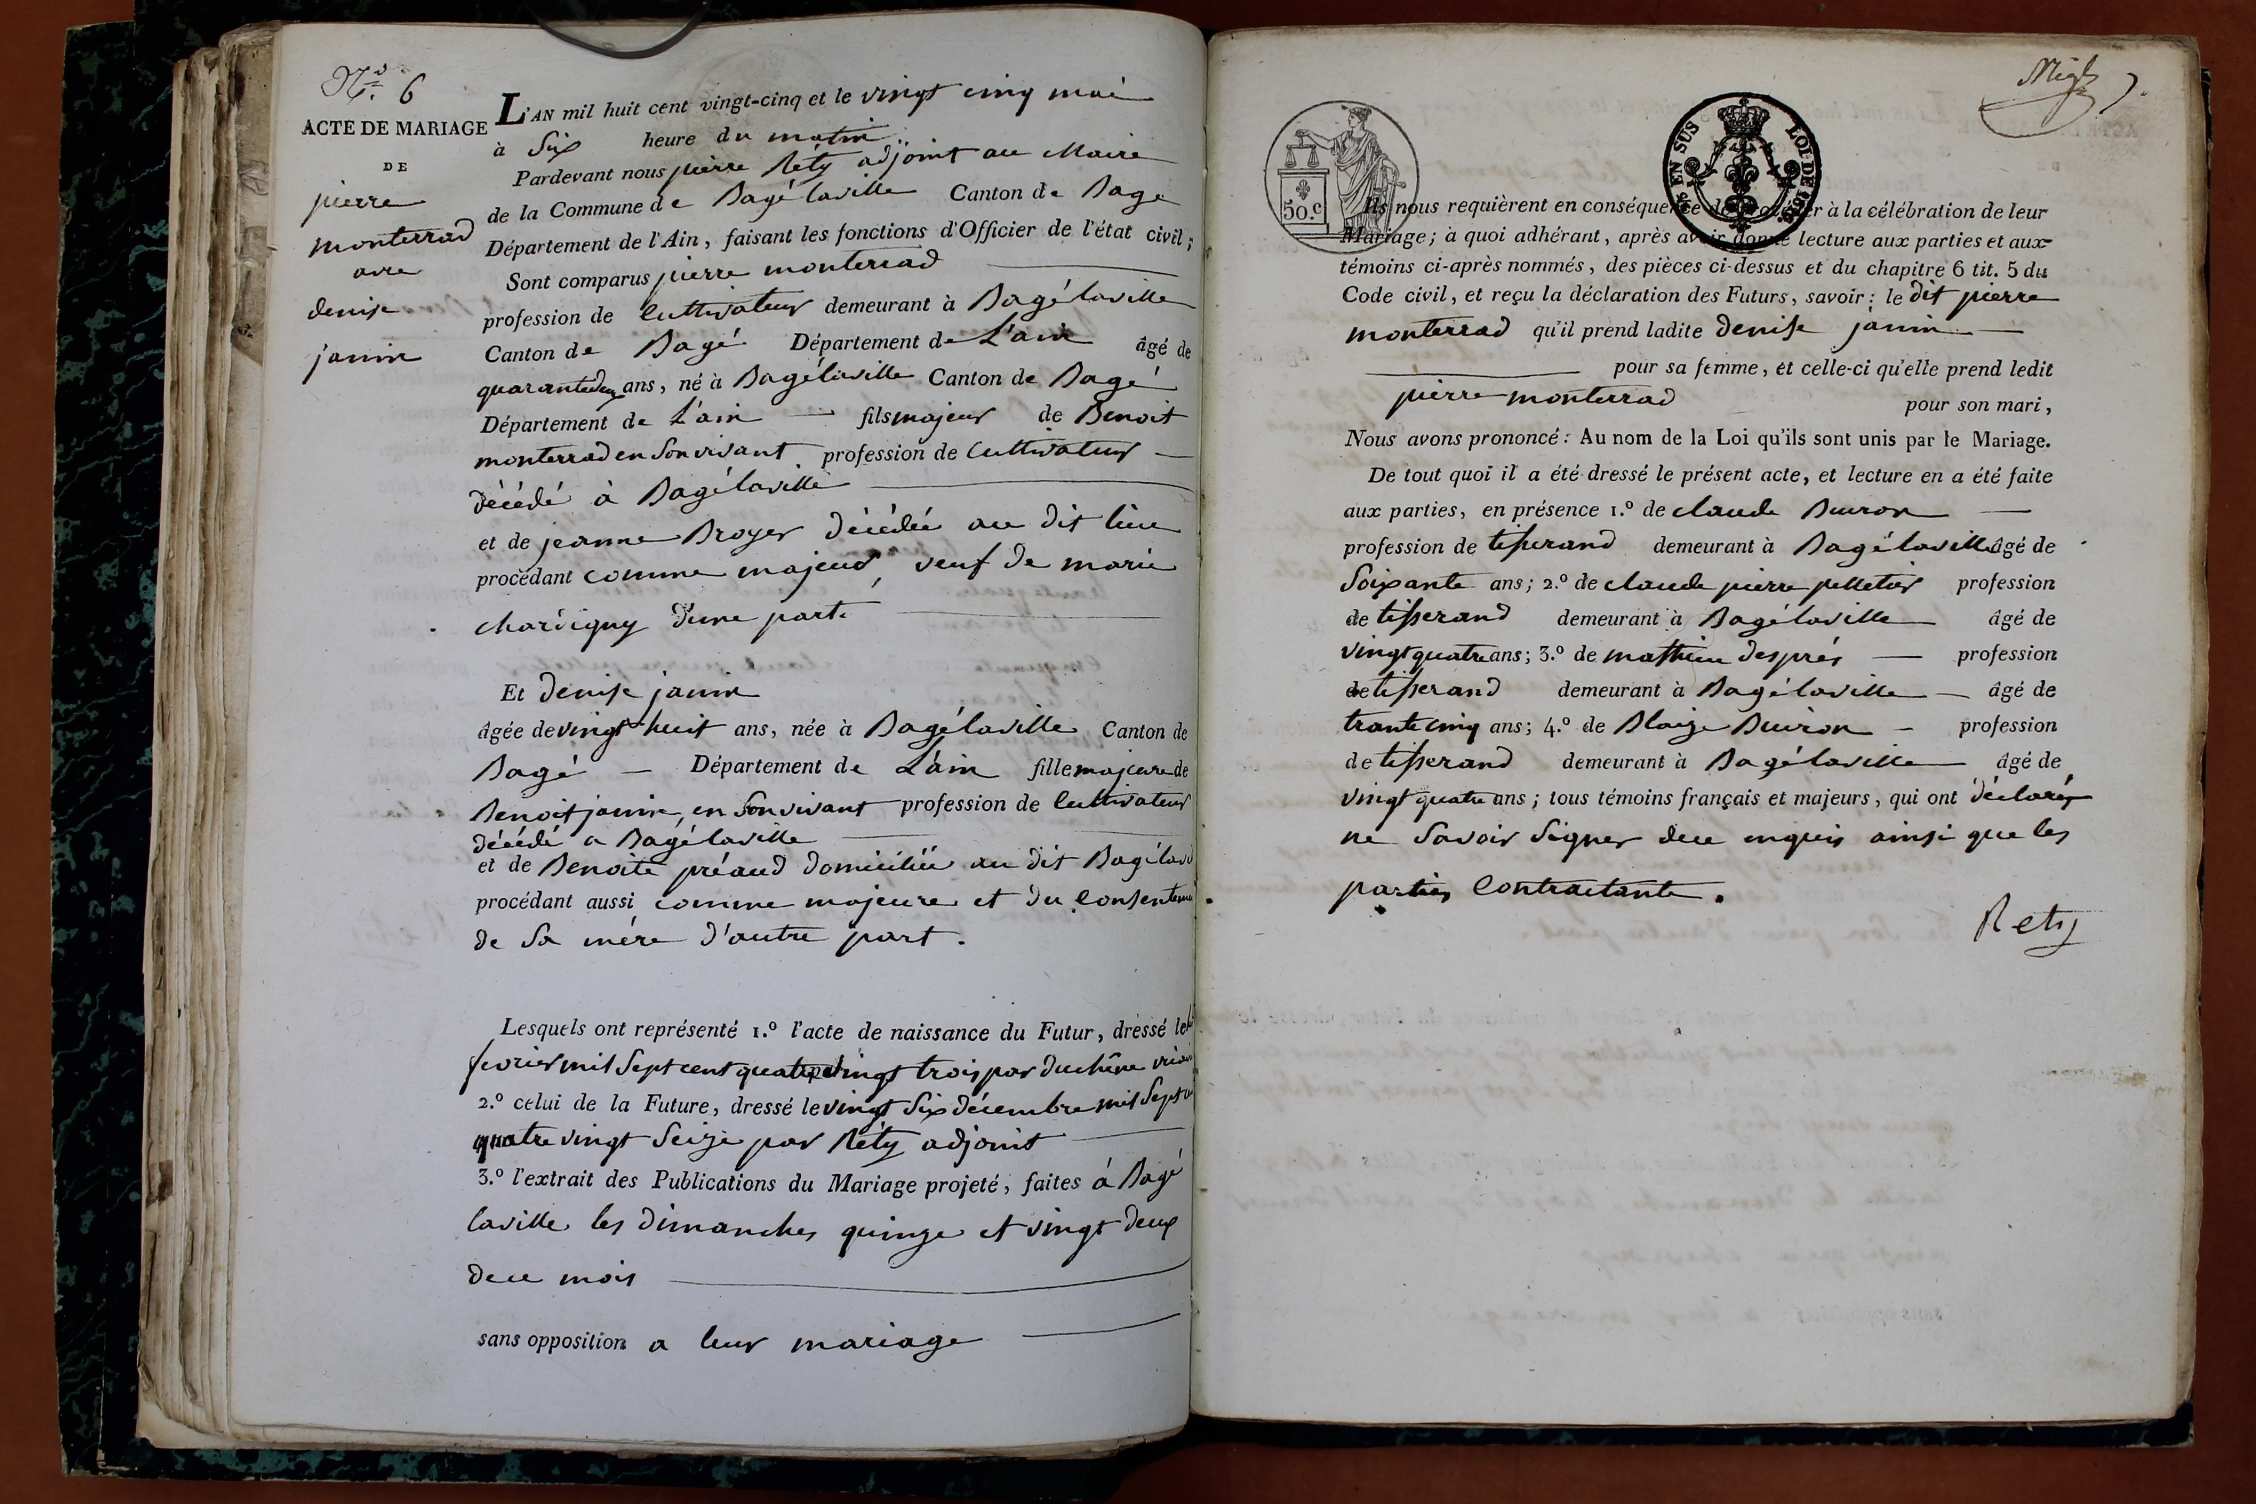 N.° 6
ACTE DE MARIAGE
DE
pierre
monterrad
avec
denise
janin
L'AN mil huit cent vingt-cinq et le vingt cinq mai
à Six heure du matin
Pardevant nous pierre Réty adjoint au Maire
de la Commune de Bagélaville Canton de Bage
Département de l'Ain, faisant les fonctions d'Officier de l'état civil;
Sont comparus pierre monterrad
profession de Cultivateur demeurant à Bagélaville
Canton de Bagé Département de L'ain âgé de
quarantedeux ans, né à Bagélaville Canton de Bagé
Département de L'ain fils majeur de Benoit
monterrad en Son vivant profession de Cultivateur
décédé à Bagélaville
et de jeanne Broyer décédée au dit lieu
procédant comme majeur, veuf de marie
chardigny d'une part.
Et denise janin
âgée de vingt huit ans, née à Bagélaville Canton de
Bagé Département de L'ain fille majeure de
Benoit janin, en Son vivant profession de Cultivateur
décédé a Bagélaville
et de Benoite préaud domiciliée au dit Bagélav
procédant aussi comme majeure et du Consentem
de Sa mére d'autre part.
Lesquels ont représenté 1.° l'acte de naissance du Futur, dressé le
fevrier mil Sept cent quatrevingt trois par duchêne
2.° celui de la Future, dressé le vingt Six décembre mil Sept
quatre vingt Seize par Réty adjoint
3.° l'extrait des Publications du Mariage projeté, faites à Bagé
laville les dimanches quinze et vingt deux
de ce mois
sans opposition a leur mariage
50.c
EN SUS
LOI DE
Ils nous requièrent en conséquence de procéder à la célébration de leur
Mariage; à quoi adhérant, après avoir donné lecture aux parties et aux
témoins ci-après nommés, des pièces ci-dessus et du chapitre 6 tit. 5 du
Code civil, et reçu la déclaration des Futurs, savoir: le dit pierre
monterrad qu'il prend ladite denise janin
pour sa femme, et celle-ci qu'elle prend ledit
pierre monterrad pour son mari,
Nous avons prononcé: Au nom de la Loi qu'ils sont unis par le Mariage.
De tout quoi il a été dressé le présent acte, et lecture en a été faite
aux parties, en présence 1.° de claude Buiron
profession de tisserand demeurant à Bagélaville âgé de
Soixante ans; 2.° de claude pierre pelletier profession
de tisserand demeurant à Bagélaville âgé de
vingt quatre ans; 3.° de mathieu després profession
de tisserand demeurant à Bagélaville âgé de
trante cinq ans; 4.° de Blaize Buiron profession
de tisserand demeurant à Bagélaville âgé de
vingt quatre ans; tous témoins français et majeurs, qui ont déclarés
ne Savoir Signer de ce enquis ainsi que les
parties Contractante.
Rety